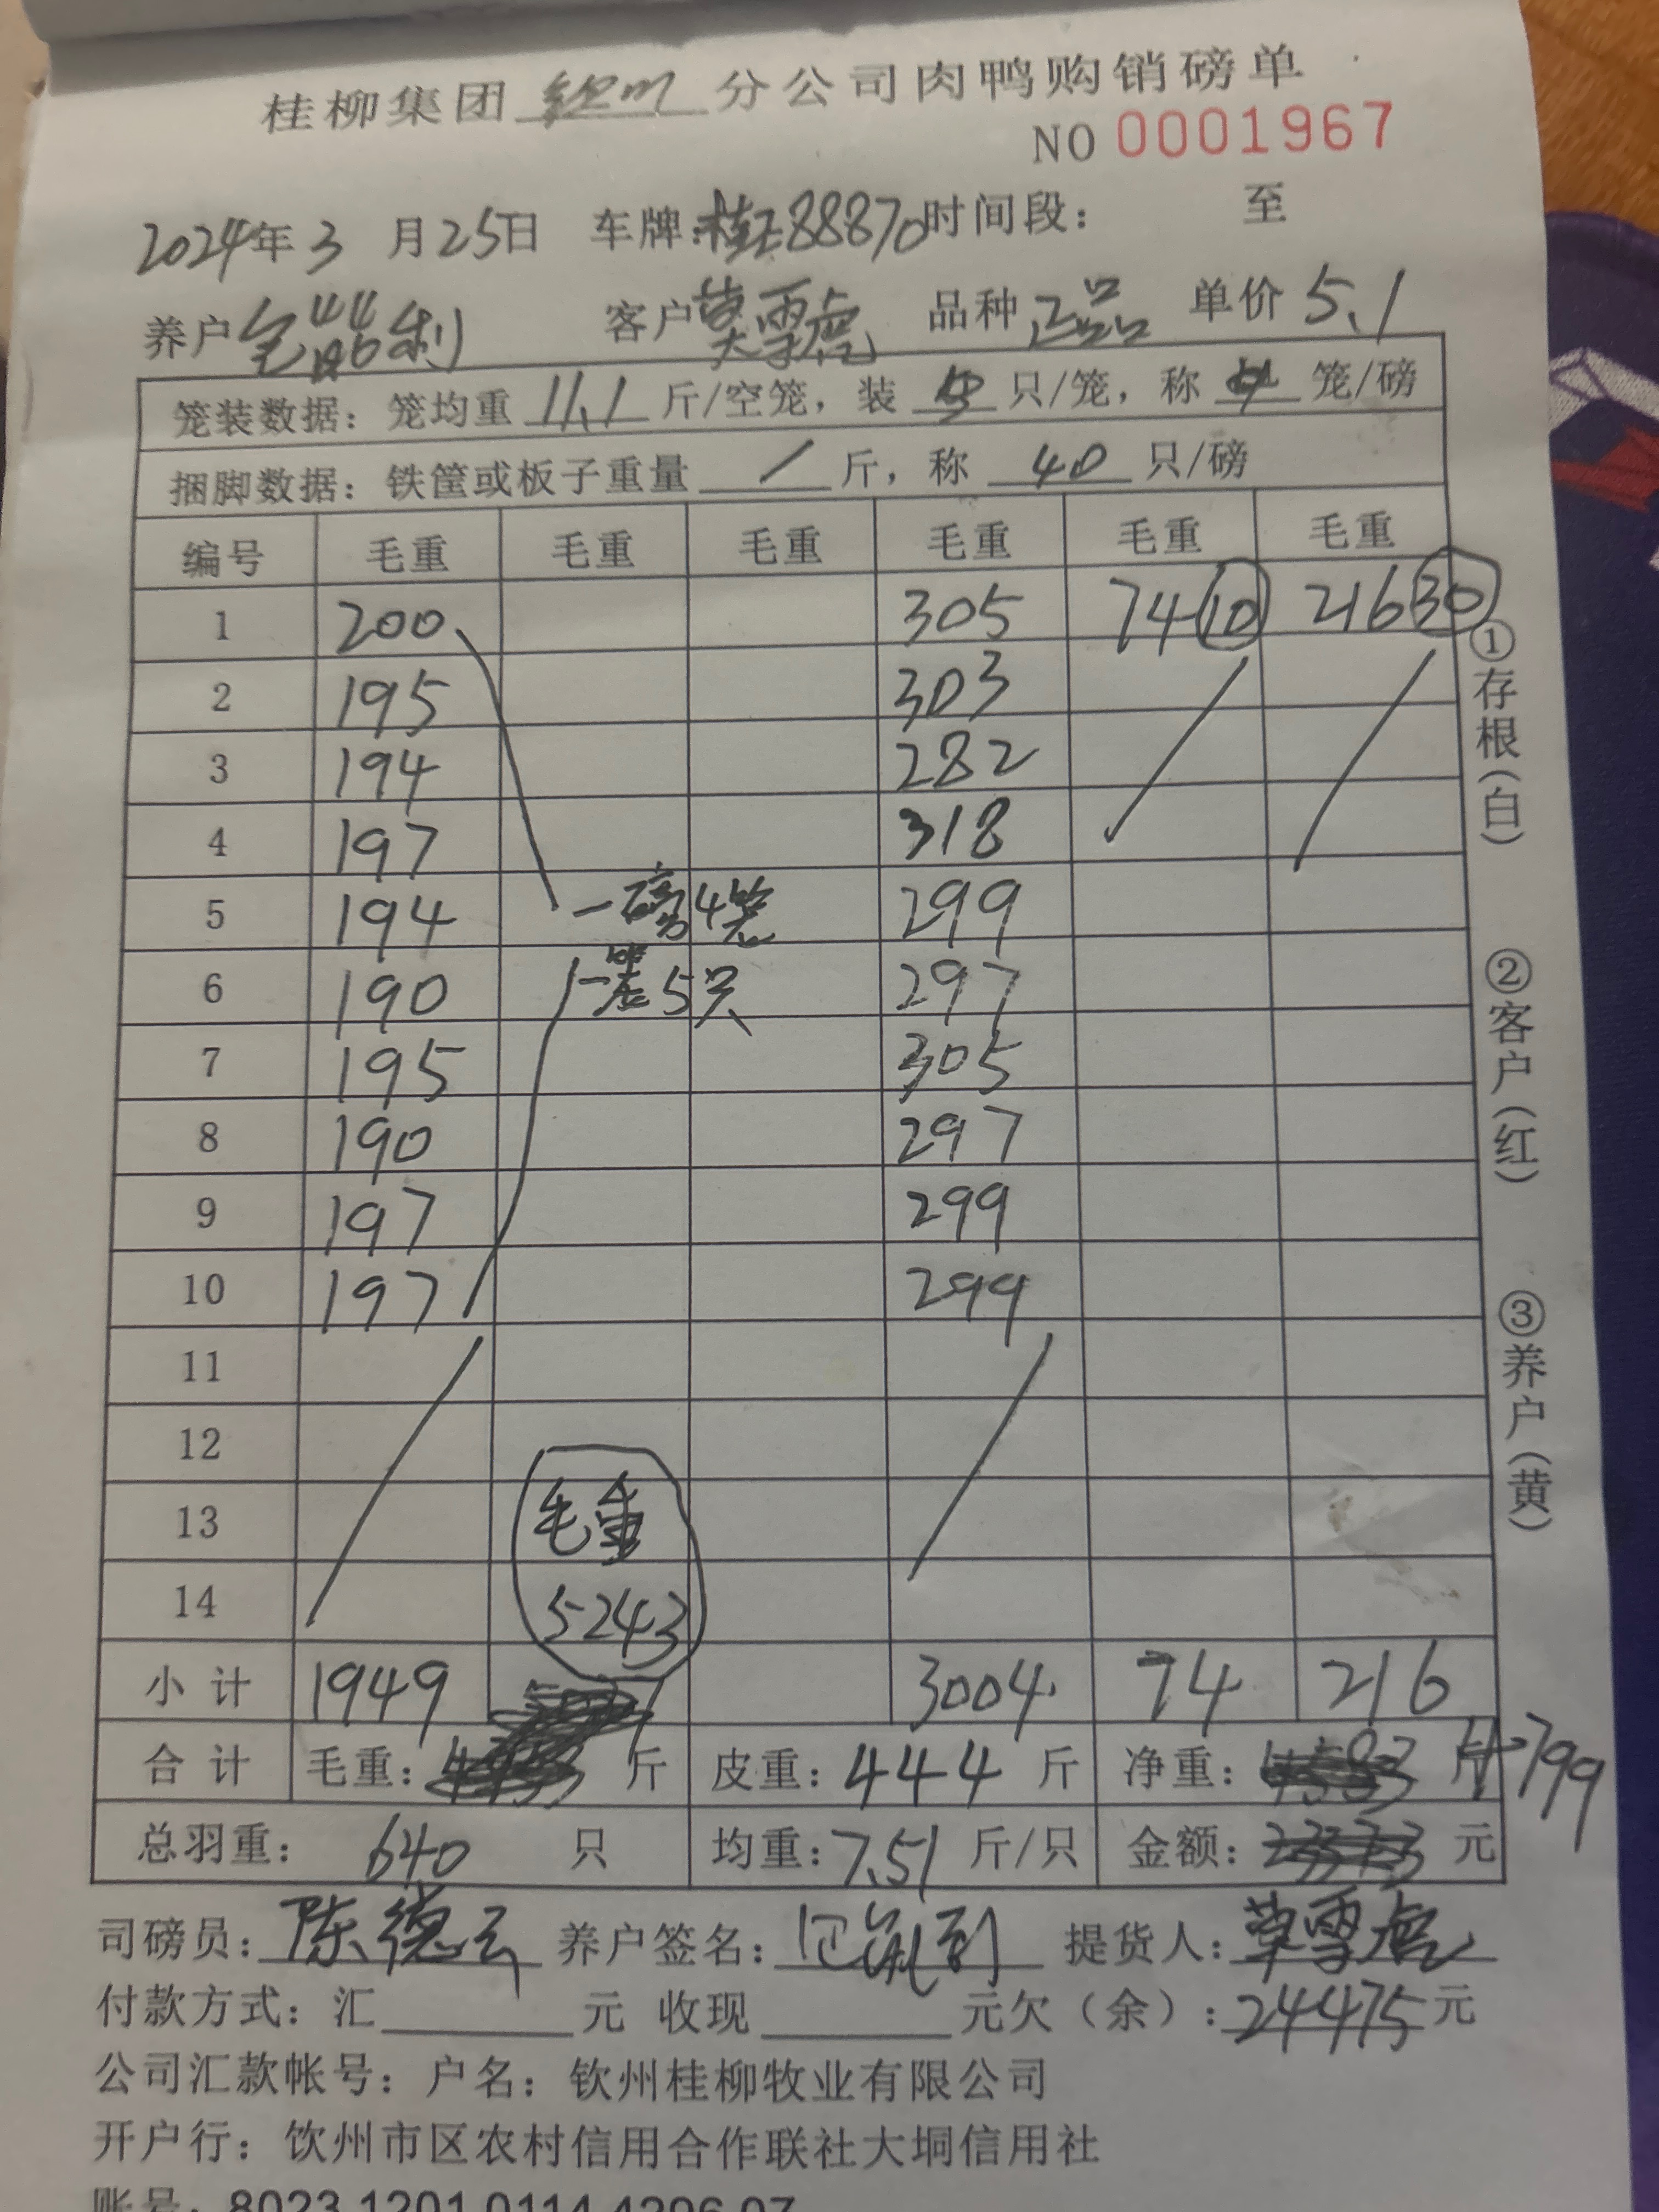 桂柳集团钦州分公司肉鸭购销磅单
NO 0001967
2024年3月25日 车牌:桂E88870时间段: 至
养户 利 客户莫雪虎 品种 正品 单价 5.1
笼装数据: 笼均重 11.1 斤/空笼, 装 5 只/笼, 称 4 笼/磅
捆脚数据: 铁筐或板子重量 / 斤, 称 40 只/磅
编号 毛重 毛重 毛重 毛重 毛重 毛重
1 200 305 74 10 216 30
2 195 303
3 194 282
4 197 318
5 194 一磅4笼 299
6 190 一笼5只 297
7 195 305
8 190 297
9 197 299
10 197 299
11
12
13 毛重
14 5243
小计 1949 3004 74 216
合计 毛重: 斤 皮重: 444 斤 净重: 斤 4799
总羽重: 640 只 均重: 7.51 斤/只 金额: 元
司磅员: 陈德云 养户签名: 提货人: 莫雪虎
付款方式: 汇 元 收现 元欠(余): 24475元
公司汇款帐号: 户名: 钦州桂柳牧业有限公司
开户行: 钦州市区农村信用合作联社大垌信用社
账号: 8023 1201 0114 4296 97
①存根(白)
②客户(红)
③养户(黄)